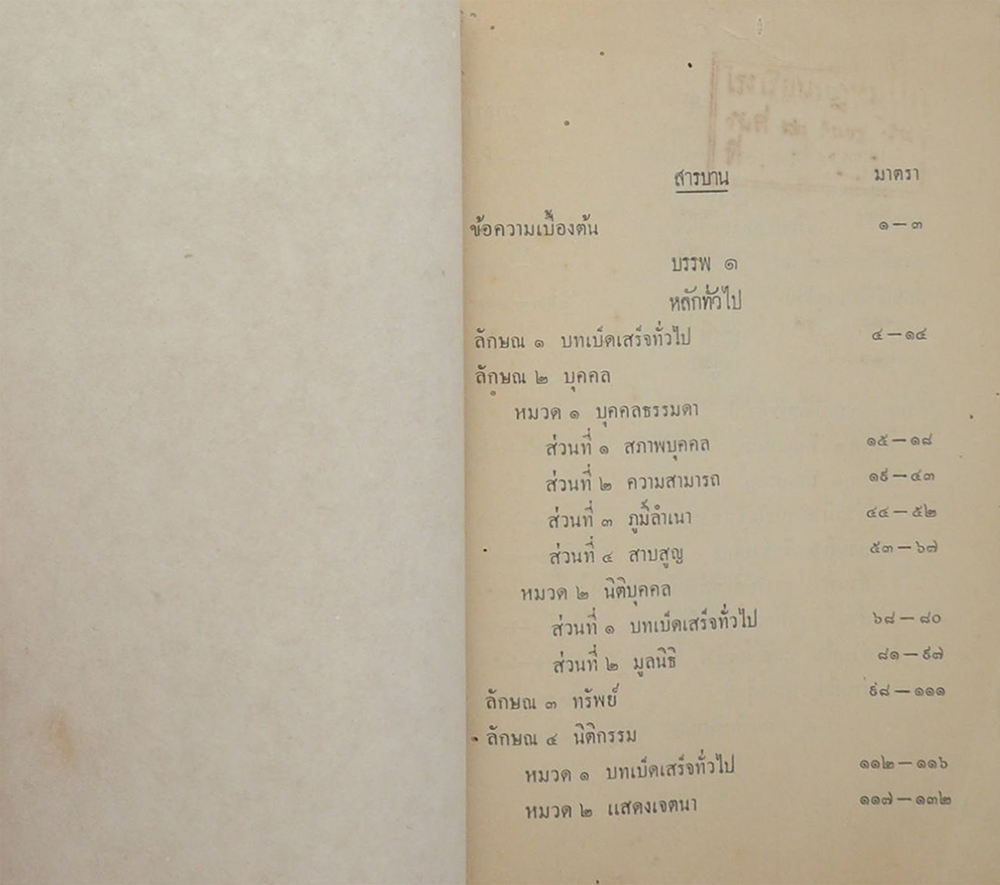 สารบาน มาตรา
ข้อความเบื้องต้น ๑ — ๓
บรรพ ๑
หลักทั่วไป
ลักษณ ๑ บทเบ็ดเสร็จทั่วไป ๔ — ๑๔
ลักษณ ๒ บุคคล
หมวด ๑ บุคคลธรรมดา
ส่วนที่ ๑ สภาพบุคคล ๑๕ — ๑๘
ส่วนที่ ๒ ความสามารถ ๑๙ — ๔๓
ส่วนที่ ๓ ภูมิลำเนา ๔๔ — ๕๒
ส่วนที่ ๔ สาบสูญ ๕๓ — ๖๗
หมวด ๒ นิติบุคคล
ส่วนที่ ๑ บทเบ็ดเสร็จทั่วไป ๖๘ — ๘๐
ส่วนที่ ๒ มูลนิธิ ๘๑ — ๙๗
ลักษณ ๓ ทรัพย์ ๙๘ — ๑๑๑
ลักษณ ๔ นิติกรรม
หมวด ๑ บทเบ็ดเสร็จทั่วไป ๑๑๒ — ๑๑๖
หมวด ๒ แสดงเจตนา ๑๑๗ — ๑๓๒